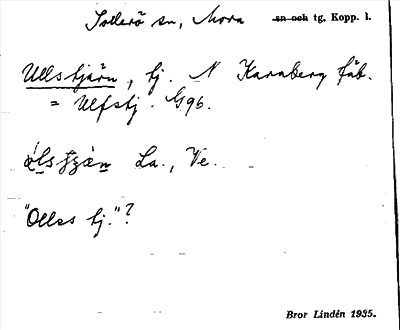 Sollerö sn, Mora sn och tg. Kopp. l.
Ullstjärn, tj. N Karaberg fäb.
= Ulfstj. G96.
La., Ve.
"Olles tj."?
Bror Lindén 1935.